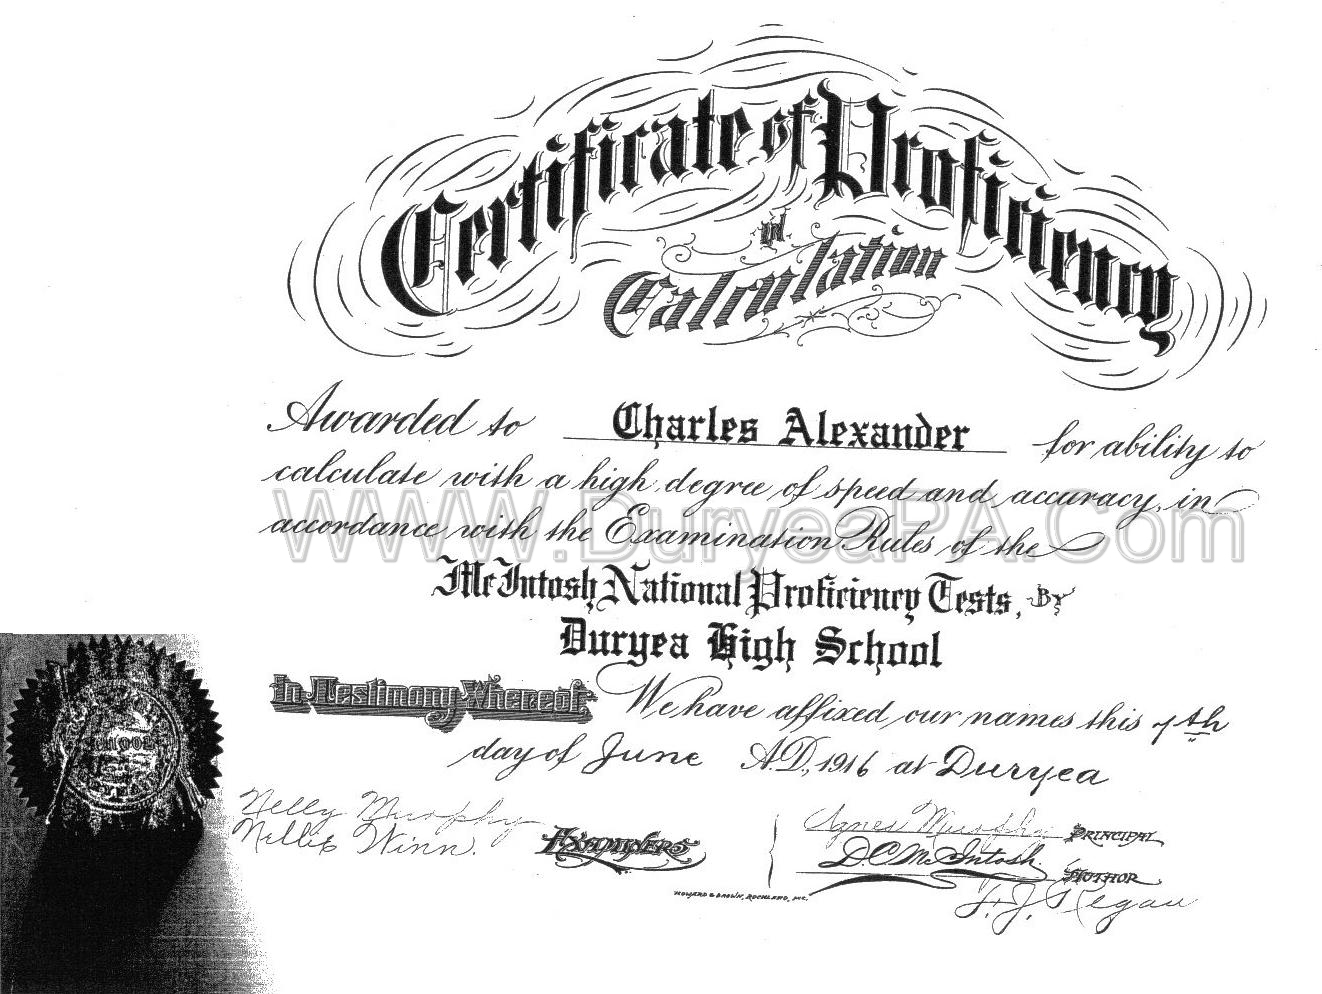 Certificate of Proficiency
in
Calculation
Awarded to Charles Alexander for ability to
calculate with a high degree of speed and accuracy, in
accordance with the Examination Rules of the
www.DuryeaPA.Com
McIntosh National Proficiency Tests, By
Duryea High School
In Testimony Whereof We have affixed our names this 7th
day of June A.D., 1916 at Duryea
Nelly Murphy
Nellie Winn.
Examiners
Agnes Murphy Principal
D.C. McIntosh. Author
Howard & Brown, Rockland, Me.
F. J. Regan